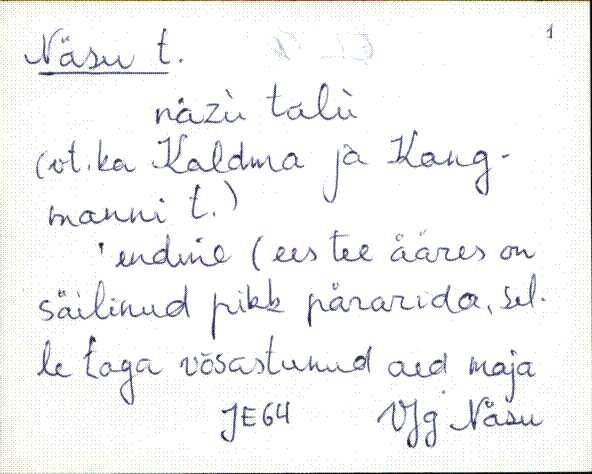 1
Näsu t.
näzù talù
(vt. ka Kaldma ja Kang-
manni t.)
endine (ees tee ääres on
säilinud pikk pärarida, sel-
le taga võsastunud aed maja
JE64 VJg Näsu